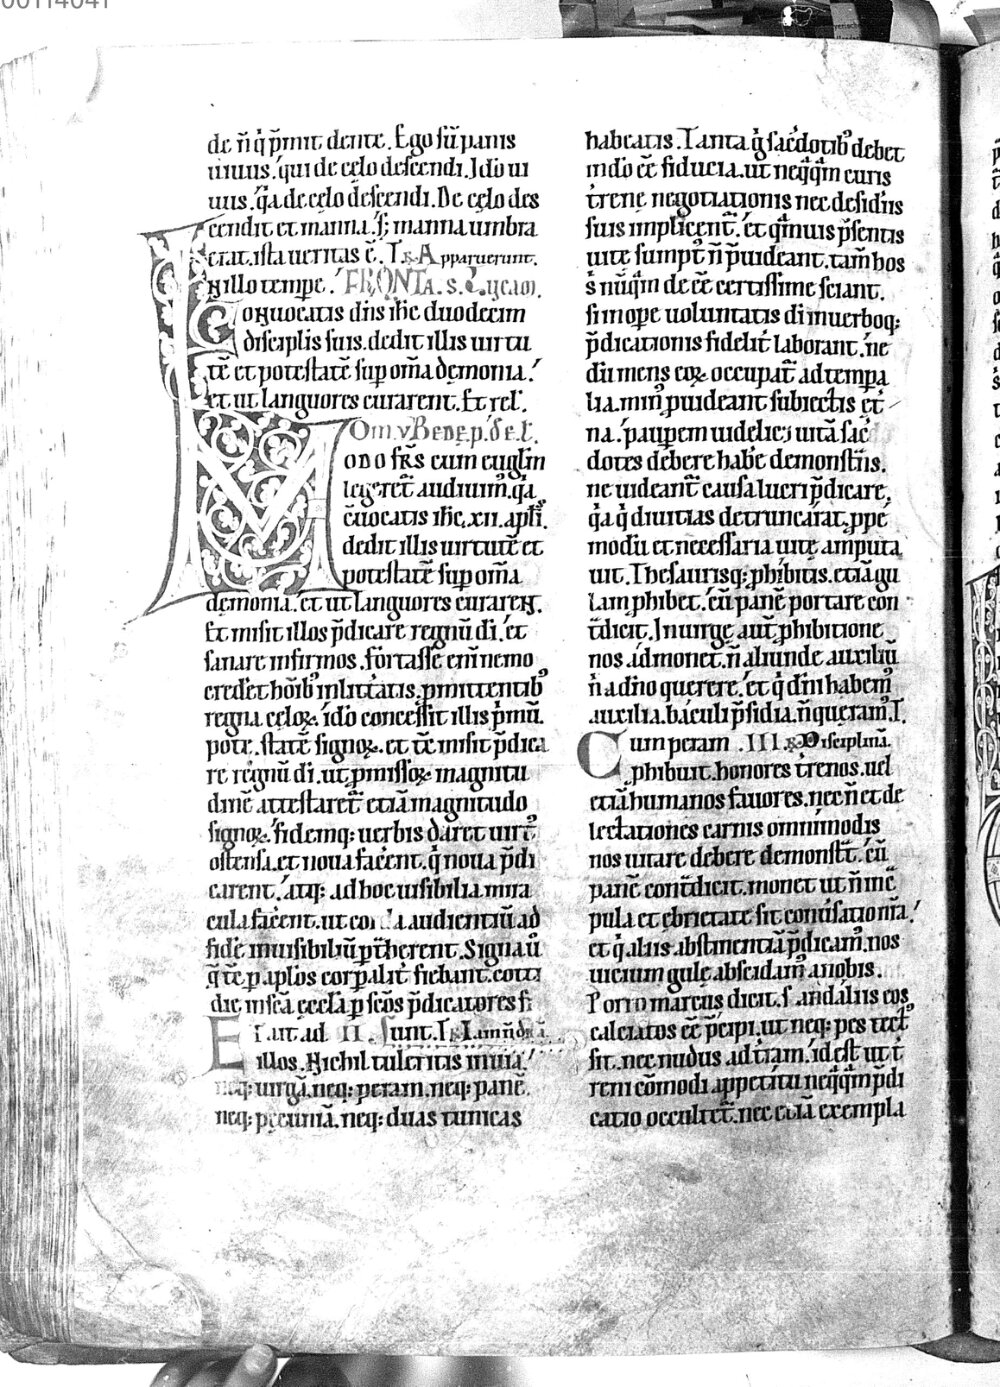 00114041
de n̄ q̇ p̄mit dente. Ego sū panis
uiuus. qui de cęlo descendi. Ideo ui
uus. q̇a de cęlo descendi. De cęlo des
cendit et manna. s; manna umbra
erat. ista ueritas ē. Apparuerunt.
N illo tempe. S. Lucam.
Conuocatis dn̄s ihc duodecim
disciplis suis. dedit illis uirtu
tē et potestatē sup om̄a demonia.
et ut languores curarent. Et rel.
Om. v Bene. p. de
odo frs cum euglm
legeret audiuim. qa
cuocatis ihc. xii. apli.
dedit illis uirtutē et
potestatē sup om̄a
demonia. et ut languores curarent.
Et misit illos p̄dicare regnū di. et
sanare infirmos. fortasse eni nemo
crederet hoib; inlitatis. pmittentib;
regna celoꝝ. ido concessit illis p̄mū.
potestatē signoꝝ. et tc misit p̄dica
re regnū di. ut pmissoꝝ magnitu
dinē attestaret etiā magnitudo
signoꝝ. fidemq; uerbis daret uirt
ostensa. et noua facent. q̇ noua p̄di
carent. atq; ad hoc uisibilia mira
cula facent. ut corda audientiū ad
fidē inuisibiliū ptherent. Signa ū
q̄ tc p aplos corpalit fiebant. cotti
die in scā ęccla p scōs p̄dicatores fi
Et ait ad II. sunt.
illos. Nichil tuleritis in uia.
neq; uirgā. neq; peram. neq; panē.
neq; pecuniā. neq; duas tunicas
habeatis. Tanta g̊ sacdotib; debet
in do ee fiducia. ut neq̄q̄m curis
trenę negotiationis nec desidiis
suis implicent. et q̄muis p̄sentis
uitę sumpt n̄ puideant. tam hos
s nuq̄m de ee certissime sciant.
si inope uoluntatis di in uerboq;
p̄dicationis fidelit laborant. ne
dū mens eoꝝ occupat ad tempa
lia. min puideant subiectis et
na. paupem uidelicz uitā sac
dotes debere habe demonstns.
ne uideant causa lucri p̄dicare.
q̇a q̇ diuitias detruncarat. ppe
modū et necessaria uitę amputa
uit. Thesaurisq; phibitis. etiā gu
lam phibet. cū panē portare con
tdicit. In uirge aut phibitione
nos admonet. n̄ aliunde auxiliū
n̄ a dn̄o querere. et q̇ dn̄i habem
auxilia. baculi p̄sidia. n̄ queram.
Cum peram. III Disciplina.
phibuit. honores trenos. uel
etiā humanos fauores. nec n̄ et de
lectationes carnis omnimodis
nos uitare debere demonstt. cū
panē contdicit. monet ut n̄ in e
pula et ebrietate sit conuisatio nra.
et q̇ aliis abstinentiā p̄dicam. nos
uicium gulę abscidam a nobis.
Porro marcus dicit. sandaliis eos
calciatos ee p̄cipi. ut neq; pes tect
sit. nec nudus ad tram. id est ut t
reni cōmodi appetitu neq̄q̄m p̄di
catio occultet. nec etiā exempla